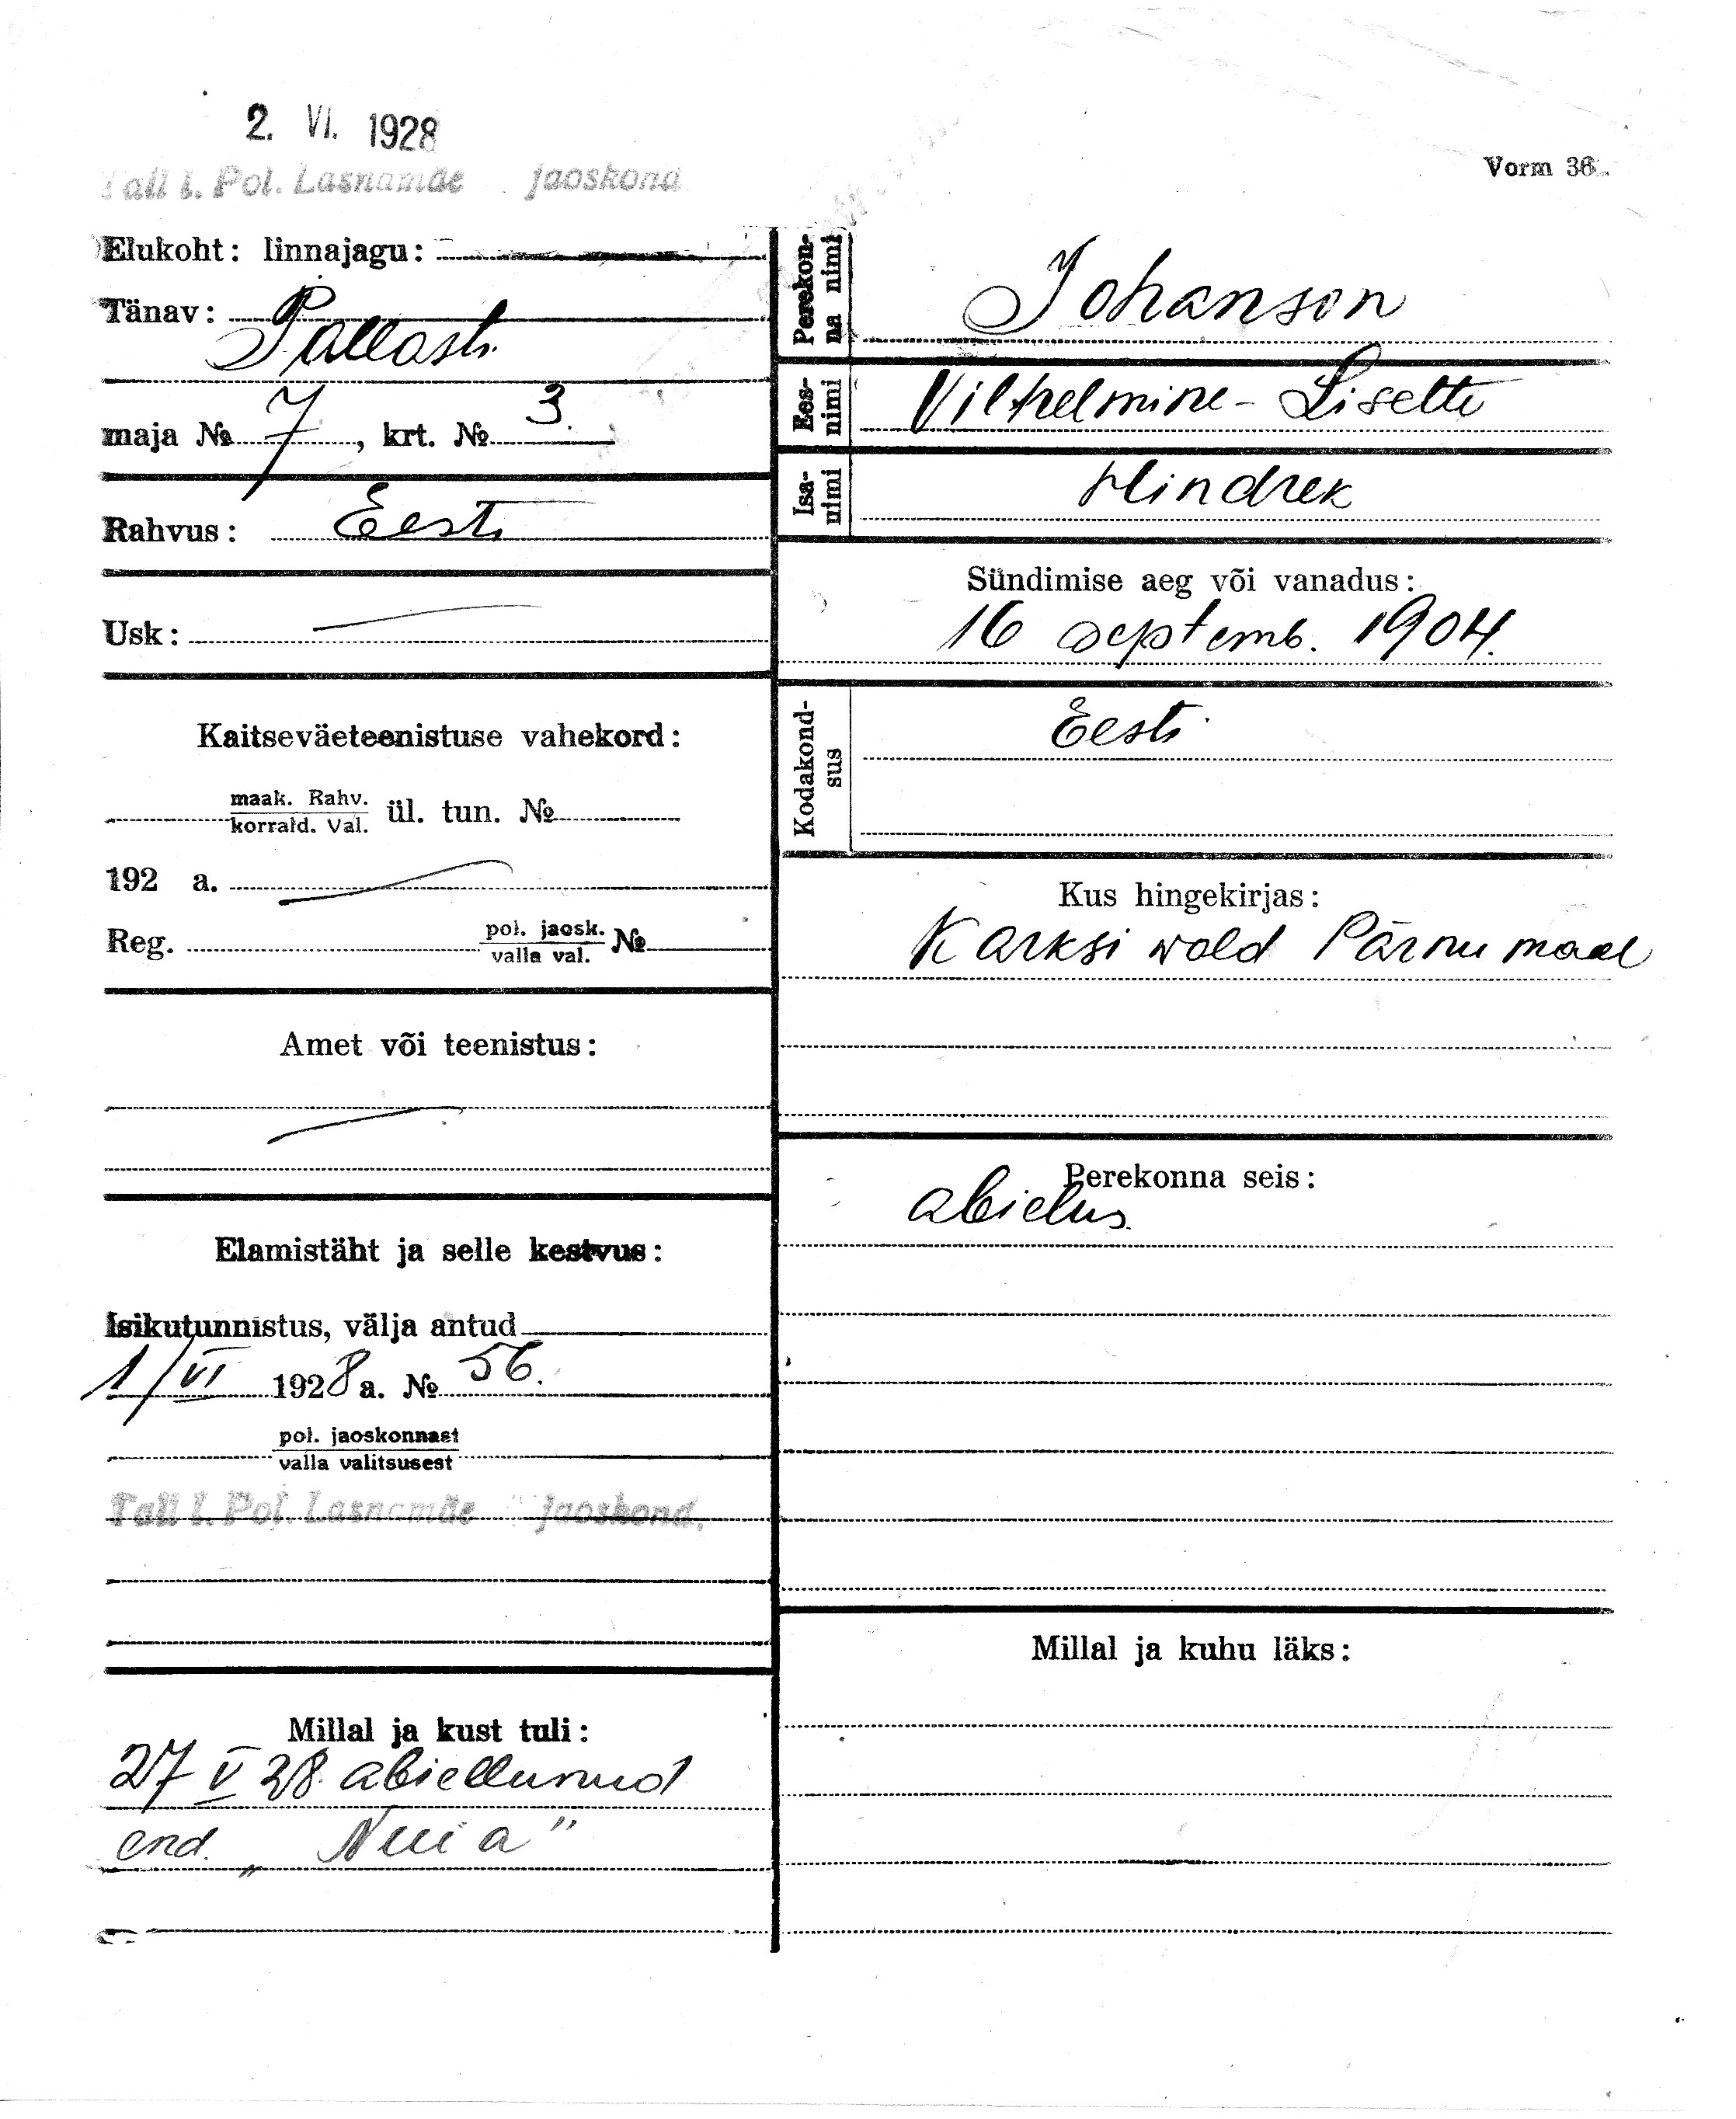 2. VI. 1928
Tall l. Pol. Lasnamäe jaoskond
Vorm 36.
Elukoht: linnajagu:
Tänav: Pallasti
maja № 7, krt. № 3.
Rahvus: Eesti
Usk:
Kaitseväeteenistuse vahekord:
maak. Rahv.
korrald. Val. ül. tun. №
192 a.
Reg. pol. jaosk. №
valla val.
Amet või teenistus:
Elamistäht ja selle kestvus:
Isikutunnistus, välja antud
1/VI 1928 a. № 56.
pol. jaoskonnast
valla valitsusest
Tall l. Pol. Lasnamäe jaoskond.
Millal ja kust tuli:
27 V 28. abiellunud
end. „Nuia"
Perekon-
na nimi
Johanson
Ees-
nimi
Vilhelmine-Lisette
Isa-
nimi
Hindrek
Sündimise aeg või vanadus:
16 septemb. 1904.
Kodakond-
sus
Eesti
Kus hingekirjas:
Karksi wald Pärnu maal
Perekonna seis:
abielus
Millal ja kuhu läks: